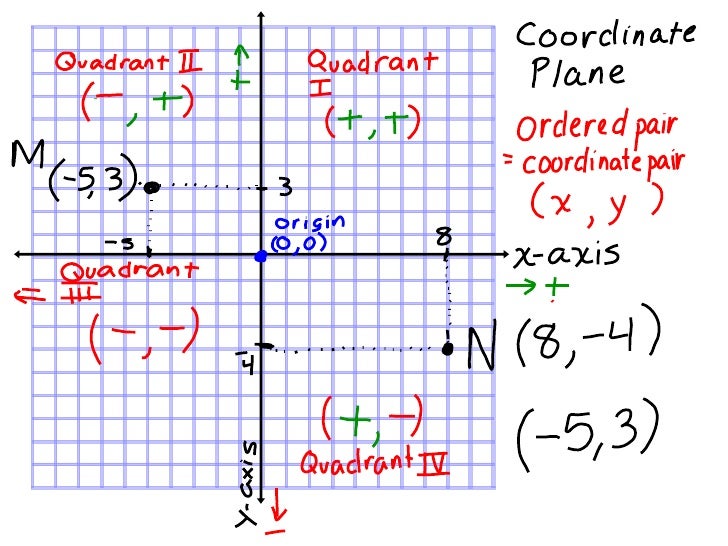 Coordinate
Plane
Quadrant II
(−, +)
+
Quadrant
I
(+, +)
Ordered pair
= coordinate pair
(x, y)
M (-5,3)
3
-5
Origin
(0,0)
8
x-axis
→ +
Quadrant
III
⇐
(−, −)
-4
N (8,-4)
(-5,3)
(+, −)
Quadrant IV
y-axis
−